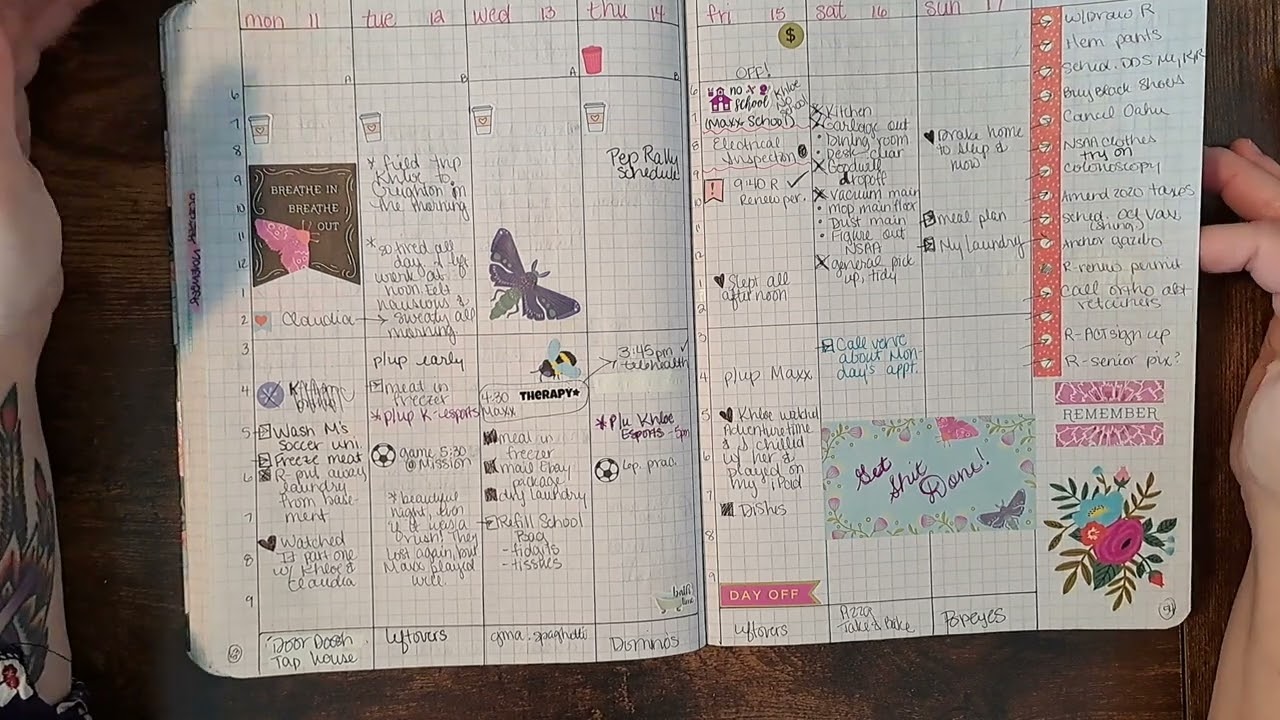 mon 11
A
7
8
BREATHE IN
BREATHE
OUT
9
10
11
12
1
2
Claudia
3
4
5
Wash M's
soccer uni
Freeze meat
R-put away
laundry
from base-
ment
6
7
Watched
IT part one
w/ Khloe &
Claudia
8
9
Door Dash
Tap house
tue 12
B
* field trip
Khloe to
Creighton in
the morning
* so tired all
day. I left
nauseous &
sweaty all
morning
p/up early
meat in
freezer
* p/up K-esports
game 5:30
@ Mission
* beautiful
night, even
They
lost again, but
Maxx played
well.
leftovers
wed 13
A
4:30
Maxx
THERAPY*
meal in
freezer
mail Ebay
package
dry laundry
Refill School
Bag
- fidgits
- tissues
gma. spaghetti
thu 14
B
Pep Rally
schedule
3:45pm
telehealth
* P/u Khloe
Esports - 5pm
6p. prac.
bath
time
Dominos
fri 15
$
OFF!
6
no
school
Khloe
No
School
(Maxx School)
7
8
Electrical
Inspection
9
!
9:40 R
Renew per.
10
11
12
1
Slept all
afternoon
2
3
4
p/up Maxx
5
Khloe watched
Adventure time
& I chilled
w/ her &
played on
my iPad
6
7
Dishes
8
9
DAY OFF
leftovers
sat 16
Kitchen
Garbage out
Dining room
Desk-clear
Goodwill
dropoff
Vacuum main
mop main floor
Dust main
Figure out
NSAA
general pick
up, tidy
Call verve
about Mon-
day's appt.
Get
Shit
Done!
Pizza
Take & Bake
sun 17
Drake home
to sleep &
mow
meal plan
My laundry
Popeyes
W/Draw R
Hem pants
Sched. DDS Me, K, R
Buy Black Shoes
Cancel Oahu
NSAA clothes
try on
Colonoscopy
Amend 2020 taxes
Sched. Oct Vax
Anchor gazebo
R-renew permit
Call ortho abt
retainers
R-ACT sign up
R-senior pix?
REMEMBER
91